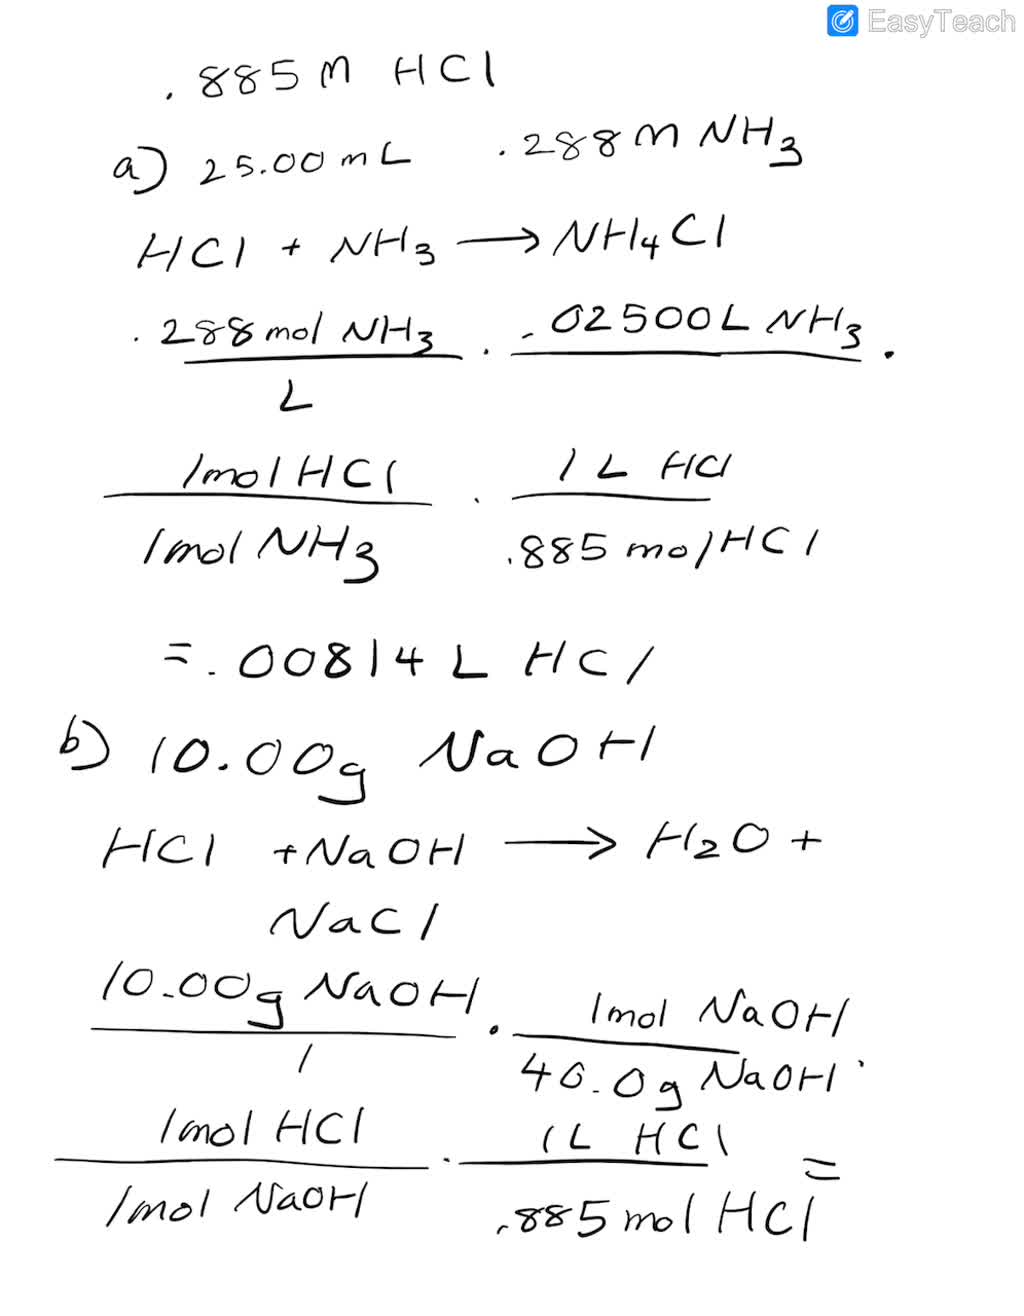 EasyTeach
.885 M HCl
a) 25.00 mL .288 M NH3
HCl + NH3 → NH4Cl
.288 mol NH3 / L · .02500 L NH3 ·
1 mol HCl / 1 mol NH3 · 1 L HCl / .885 mol HCl
= .00814 L HCl
b) 10.00g NaOH
HCl + NaOH → H2O +
NaCl
10.00g NaOH / 1 · 1 mol NaOH / 40.0g NaOH ·
1 mol HCl / 1 mol NaOH · 1 L HCl / .885 mol HCl =